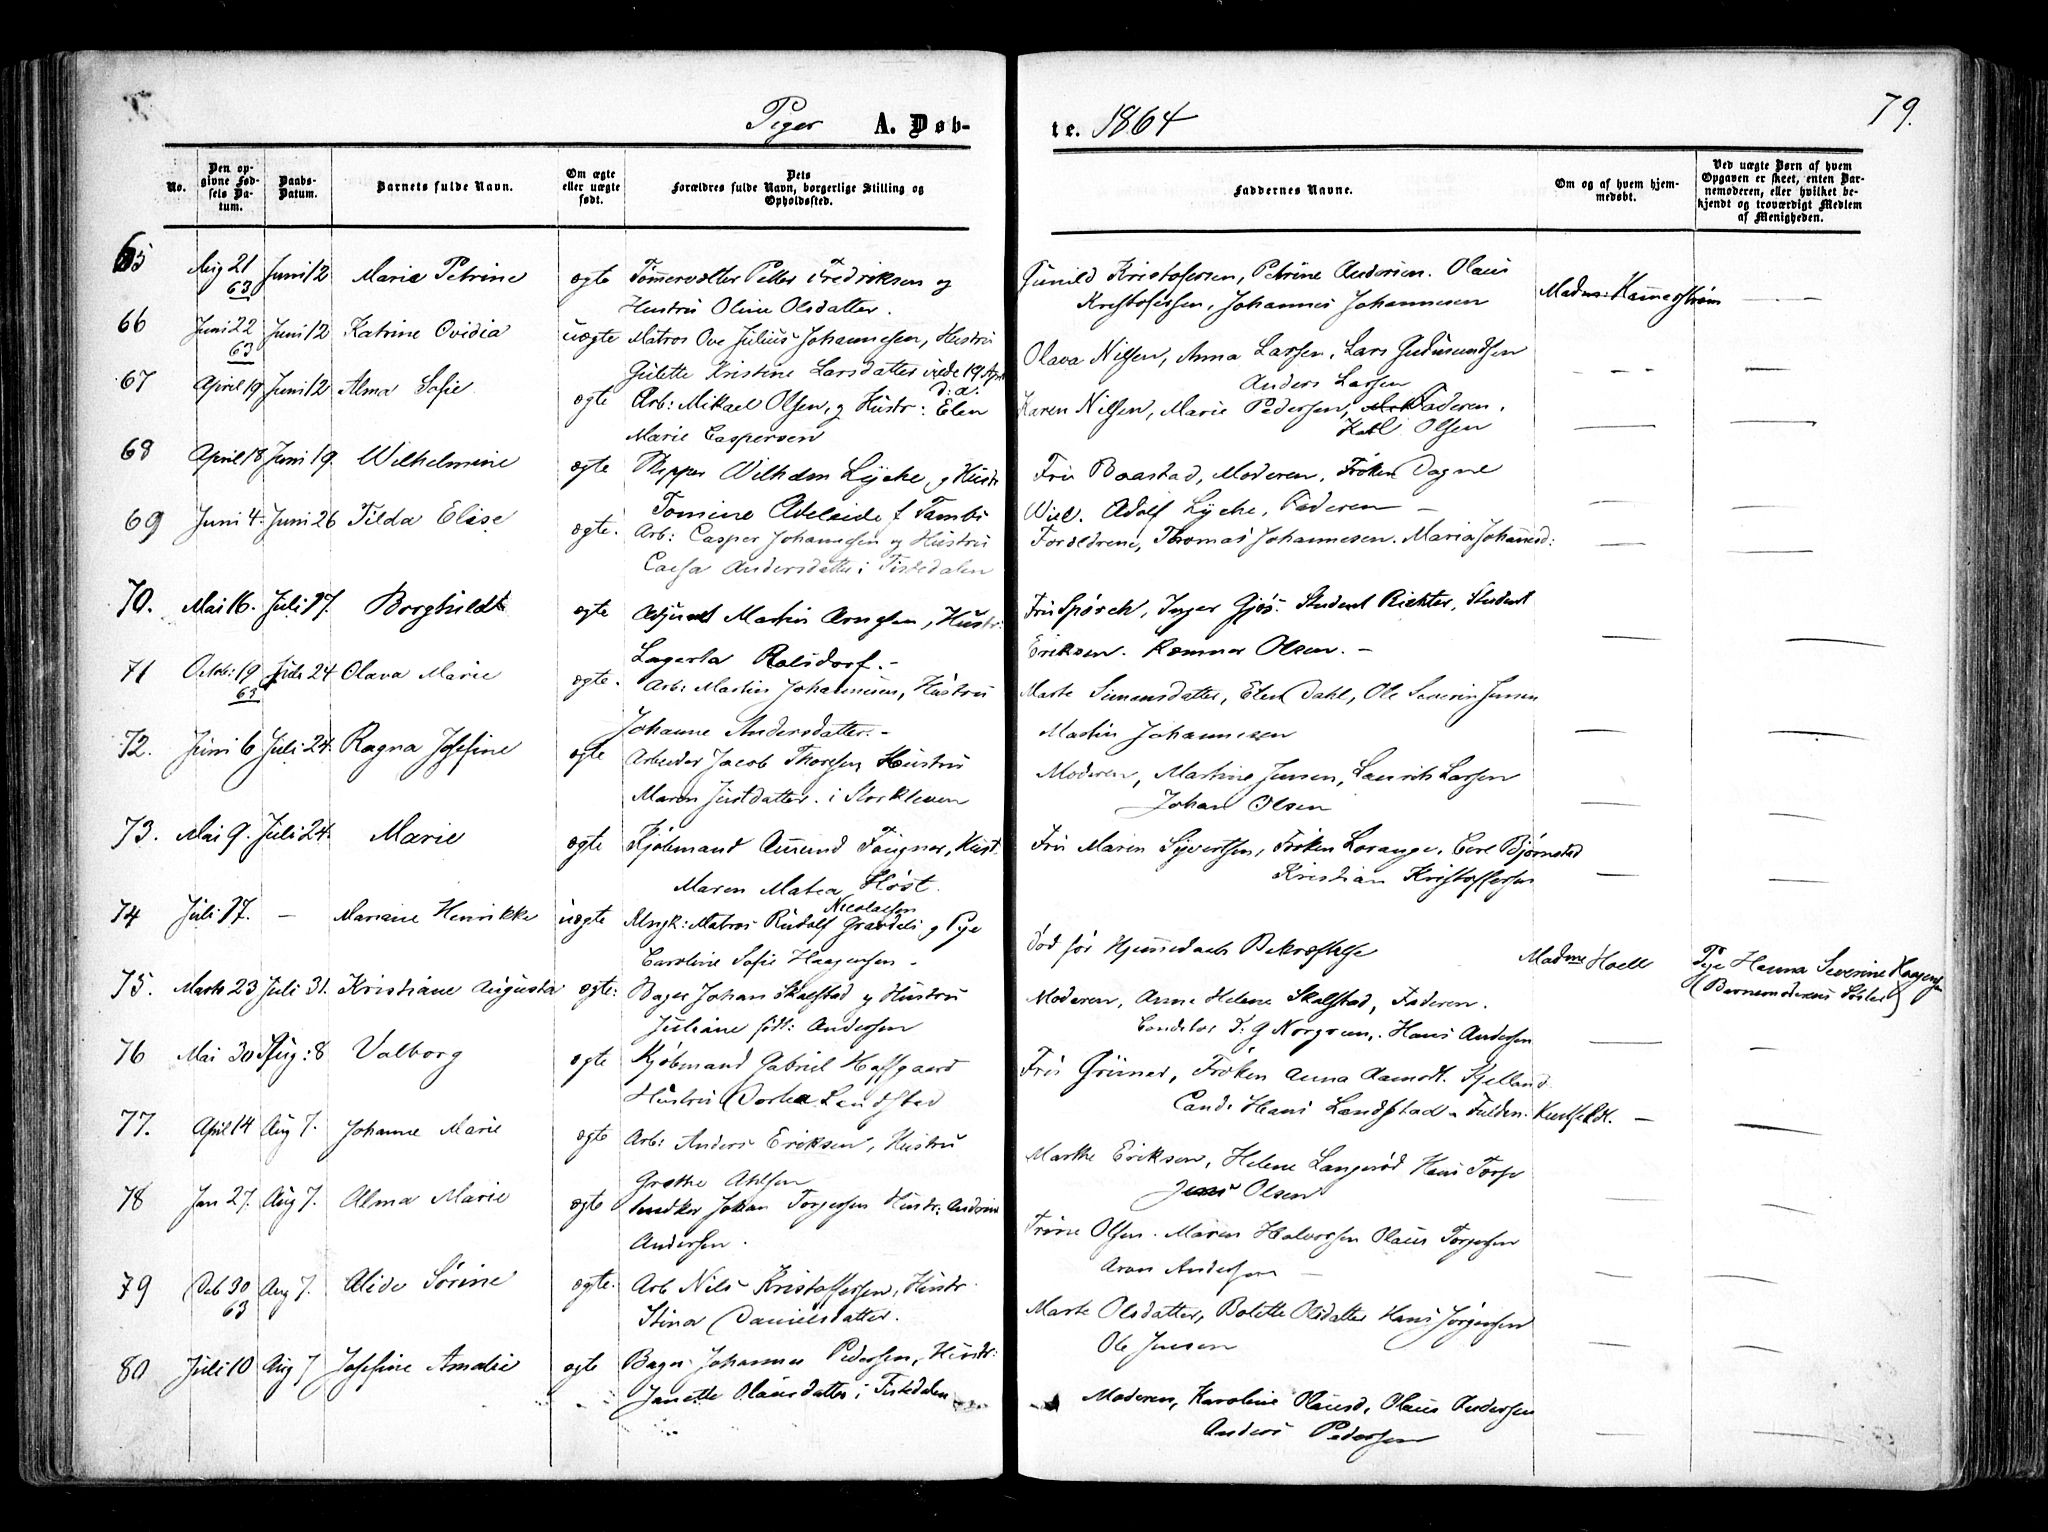 Piger A. Døb-
te. 1864
79.
No.
Den opgivne Fødsels Datum.
Daabs-Datum.
Barnets fulde Navn.
Om ægte eller uægte født.
Dets Forældres fulde Navn, borgerlige Stilling og Opholdssted.
Faddernes Navne.
Om og af hvem hjemmedøbt.
Ved uægte Børn af hvem Opgaven er skeet, enten Barnemoderen, eller hvilket bekjendt og troværdigt Medlem af Menigheden.
65 Aug 21 63 Juni 12 Maria Petrine ægte Tømmervolter Petter Fredriksen og
Hustru Oline Olsdatter.
Gunild Kristofersen, Petrine Andersen. Olaus
Kristofersen, Johannes Johannesen
66 Juni 22 63 Juni 12 Katrine Ovidia uægte Matros Ove Julius Johannesen, Hustru
Gulette Kristine Larsdatter viede 19 Apr. d: a.
Olava Nilsen, Anna Larsen, Lars Gudmundsen
Anders Larsen
67 April 19 Juni 12 Alma Sofie ægte Arb: Mikael Olsen, og Hustr: Elen
Marie Caspersen
Karen Nilsen, Marie Pedersen, Faderen.
Karl Olsen
68 April 18 Juni 19. Wilhelmine ægte Skipper Wilhelm Lyche, og Hustr
Tomine Adelaide f Tambs
Fru Baastad, Moderen, Frøken Dagne
Wiel. Adolf Lyche, Faderen —
69 Juni 4. Juni 26 Tilda Elise ægte. Arb: Casper Johannesen og Hustru
Caesa Andersdatter i Tistedalen
Forældrene, Thomas Johannesen. Maria Johannesd:
70. Mai 16. Juli 17. Borghildt ægte Adjunct Martin Arnesen, Hustr:
Lagerta Rolsdorf. -
Fru Spørck, Inger Gjøs. Student Richter, Student
Eriksen. Kæmner Olsen. —
71 Octob: 19 63 Juli 24 Olava Marie ægte. Arb: Martin Johannesen, Hustru
Johanne Andersdatter. -
Marte Simensdatter, Elen Dahl, Ole Severin Jensen
Martin Johannesen
72. Juni 6 Juli 24. Ragna Josefine ægte Arbeider Jacob Thoresen, Hustru
Maren Justdatter. i Storkleven
Moderen, Martine Jensen, Laurits Larsen
Johan Olsen
73. Mai 9. Juli 24. Marie ægte Kjøbmand Amund Fougner, Hust.
Maren Matea Høst.
Fru Maren Syvertsen, Frøken Lorange, Carl Bjørnstad
Kristian Kristoffersen
74 Juli 17. — Mariane Henrikke uægte Ungk: Matros Rudolf Nicolaisen og Pige
Caroline Sofie Haagensen -
Død før Hjemmedaabs Bekræftelse
Madme Holl
Pige Hanna Severine Haagensen
(Barnemoderens Søster)
75. Marts 23 Juli 31. Kristiane Augusta ægte: Bager Johan Skalstad og Hustru
Juliane født: Andersen
Moderen, Anne Helene Skalstad, Faderen.
Conditor T: G Norgren, Hans Andersen
76 Mai 30 Aug: 8 Valborg ægte Kjøbmand Gabriel Hofgaard
Hustru Dorthea Landstad
Frøken Anna Aamodt. Kjelland
Cand: Hans Landstad
77. April 14 Aug 7. Johanne Marie ægte Arb: Anders Eriksen, Hustru
Grethe Ahlsen
Marthe Eriksen, Helene Langerød Hans Torp
Jens Olsen
78 Jan 27. Aug 7. Alma Marie ægte Snedker Johan Torgersen Hustr: Andrine
Andersen.
Trine Olsen. Maren Halvorsen Olaus Torgersen
Aron Andersen —
79 Deb 30 63 Aug 7. Alide Sørine ægte. Arb Nils Kristoffersen, Hustr.
Stina Danielsdatter.
Marte Olsdatter, Bolette Olsdatter Hans Jørgensen
Ole Jensen
80 Juli 10 Aug 7 Josefine Amalie ægte Bager Johannes Pedersen, Hustr:
Janette Olausdatter i Tistedalen
Moderen, Karoline Olausd, Olaus Andersen
Anders Pedersen